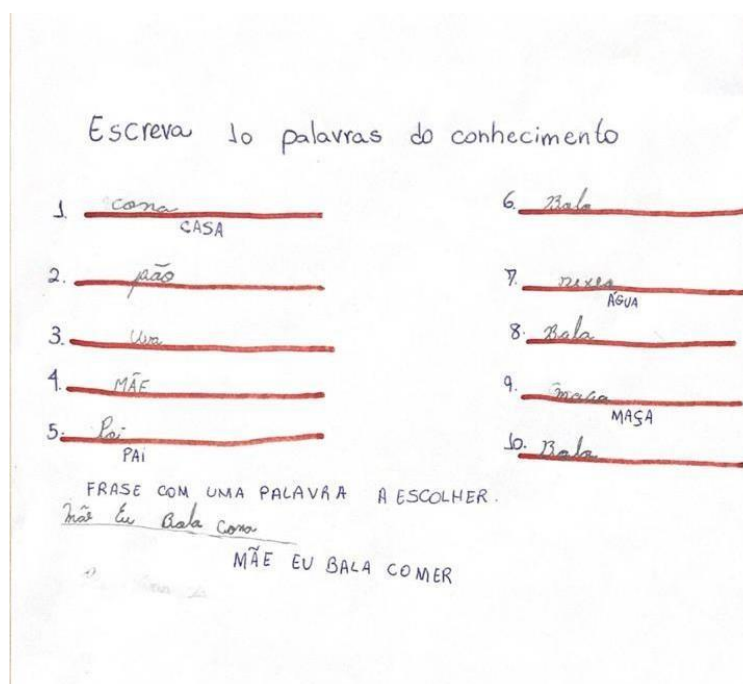 Escreva 10 palavras do conhecimento
1. cona
CASA
2. pão
3. Uva
4. MÃE
5. Pai
PAI
6. Bala
7.
ÁGUA
8. Bala
9. maça
MAÇA
10. Bala
FRASE COM UMA PALAVRA A ESCOLHER.
Mãe Eu Bala Coma
MÃE EU BALA COMER